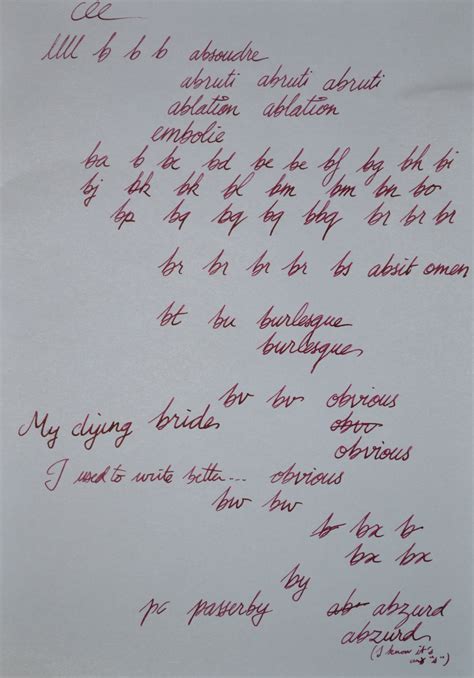 cee
llll b b b absoudre
abruti abruti abruti
ablation ablation
embolie
ba b bc bd be be bf bg bh bi
bj bk bk bl bm bm bn bo
bp bq bq bq bbq br br br
br br br br bs absit omen
bt bu burlesque
burlesque
bv bv obvious
My dying brides obvo
obvious
I used to write better... obvious
bw bw
b bx b
bx bx
by
pc passerby ab abzurd
abzurd
(I know it's
"s")